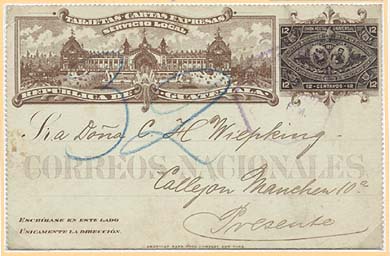 TARJETAS-CARTAS EXPRESAS
SERVICIO LOCAL
REPUBLICA DE GUATEMALA
UNION POSTAL UNIVERSAL
12 12
12 CENTAVOS 12
32
Sra Doña C H Wiepking.
CORREOS NACIONALES
Callejon Manchen 10a
Presente
ESCRÍBASE EN ESTE LADO
ÚNICAMENTE LA DIRECCIÓN.
AMERICAN BANK NOTE COMPANY, NEW YORK.